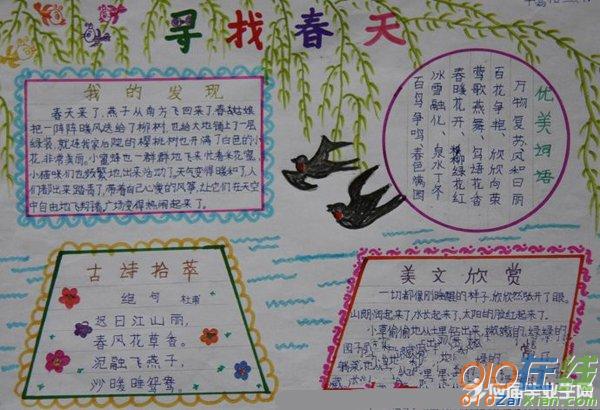 寻找春天
我的发现
春天来了,燕子从南方飞回来了,春姑娘
把一阵阵暖风送给了柳树,也给大地铺上了一层
绿装,就连我家后院的樱桃树也开满了白色的小
花,非常美丽。小蜜蜂也一群群地飞来忙着采花蜜,
小猫咪们也频繁地出来活动了,天气变得暖和了,人
们都出来踏青了,带着自己心爱的风筝,让它们在天空
中自由地飞翔着,广场变得热闹起来了。
优美词语
万物复苏 风和日丽
百花争艳、欣欣向荣
莺歌燕舞、鸟语花香
春暖花开、柳绿花红
冰雪融化、泉水丁冬
百鸟争鸣、春色满园
古诗拾萃
绝句 杜甫
迟日江山丽,
春风花草香。
泥融飞燕子,
沙暖睡鸳鸯。
美文欣赏
一切都像刚睡醒的样子,欣欣然张开了眼。
山朗润起来了,水长起来了,太阳的脸红起来了。
小草偷偷地从土里钻出来,嫩嫩的,绿绿的
910在线
910zaixian.com
应届毕业生网